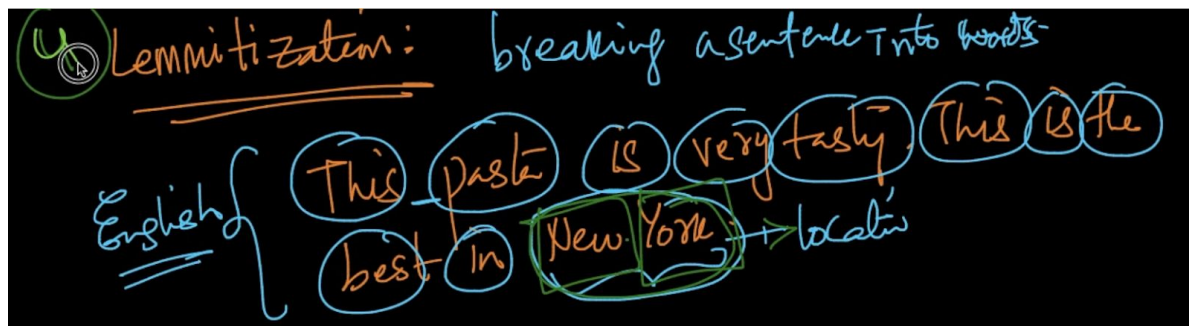 4) Lemmitization: breaking a sentence into words
This pasta is very tasty. This is the
English { best in New York → locatin